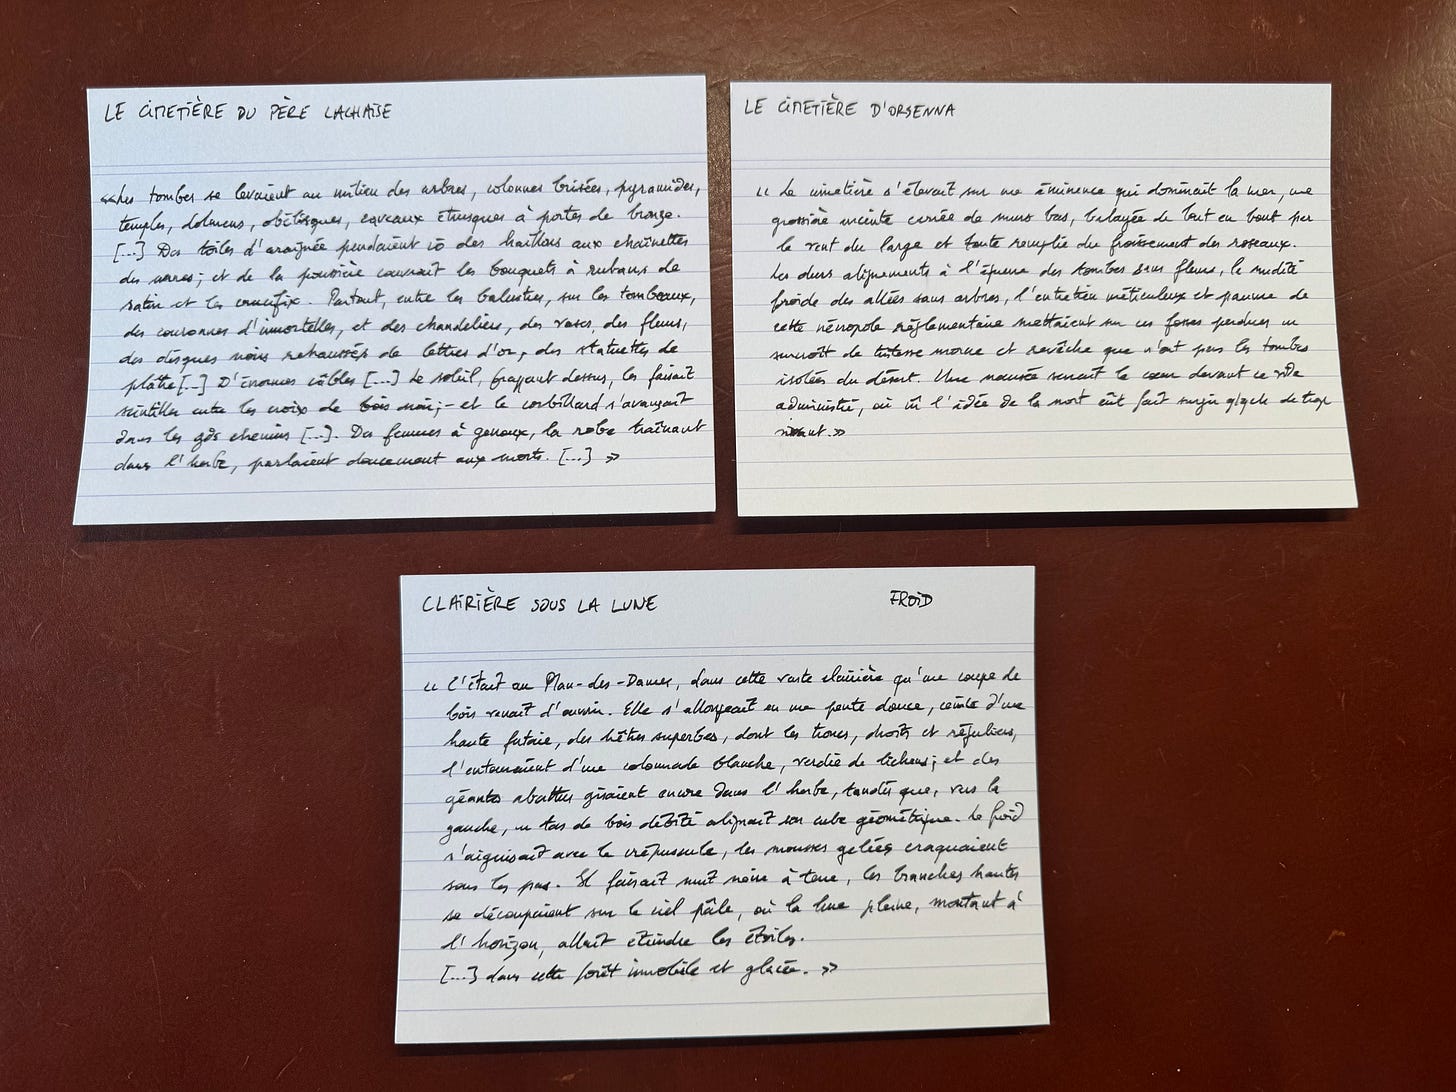 LE CIMETIÈRE DU PÈRE LACHAISE
«Les tombes se levaient au milieu des arbres, colonnes brisées, pyramides,
temples, dolmens, obélisques, caveaux étrusques à portes de bronze.
[...] Des toiles d'araignée pendaient co des haillons aux chaînettes
des urnes; et de la poussière couvrait les bouquets à rubans de
satin et les crucifix. Partout, entre les balustres, sur les tombeaux,
des couronnes d'immortelles, et des chandeliers, des vases, des fleurs,
des disques noirs rehaussés de lettres d'or, des statuettes de
plâtre [...] D'énormes câbles [...] Le soleil, frappant dessus, les faisait
scintiller entre les croix de bois noir; - et le corbillard s'avançait
dans les gds chemins [...]. Des femmes à genoux, la robe traînant
dans l'herbe, parlaient doucement aux morts. [...] »
LE CIMETIÈRE D'ORSENNA
« Le cimetière s'élevait sur une éminence qui dominait la mer, une
grossière enceinte cernée de murs bas, balayée de bout en bout par
le vent du large et toute remplie du froissement des roseaux.
Les durs alignements à l'équerre des tombes sans fleurs, la nudité
froide des allées sans arbres, l'entretien méticuleux et pauvre de
cette nécropole réglementaire mettaient sur ces fosses perdues un
surcroît de tristesse morne et revêche que n'ont pas les tombes
isolées du désert. Une nausée serrait le cœur devant ce vide
administré, où l'idée de la mort eût fait surgir qlqch de trop
vivant.»
CLAIRIÈRE SOUS LA LUNE
FROID
« C'était au Plan-des-Dames, dans cette vaste clairière qu'une coupe de
bois venait d'ouvrir. Elle s'allongeait en une pente douce, ceinte d'une
haute futaie, des hêtres superbes, dont les troncs, droits et réguliers,
l'entouraient d'une colonnade blanche, verdie de lichens; et des
géants abattus gisaient encore dans l'herbe, tandis que, vers la
gauche, un tas de bois débité alignait son cube géométrique. Le froid
s'aiguisait avec le crépuscule, les mousses gelées craquaient
sous les pas. Il faisait nuit noire à terre, les branches hautes
se découpaient sur le ciel pâle, où la lune pleine, montant à
l'horizon, allait éteindre les étoiles.
[...] dans cette forêt immobile et glacée. »